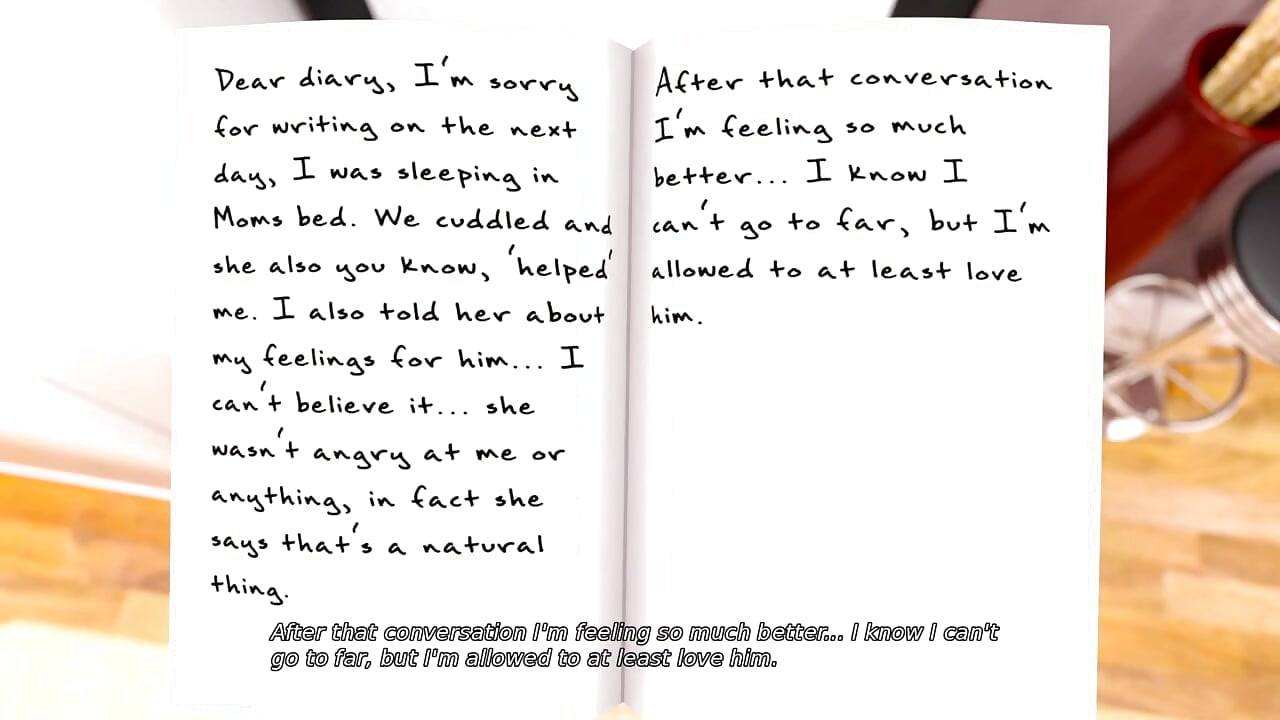 Dear diary, I'm sorry
for writing on the next
day, I was sleeping in
Moms bed. We cuddled and
she also you know, 'helped'
me. I also told her about
my feelings for him... I
can't believe it... she
wasn't angry at me or
anything, in fact she
says that's a natural
thing.
After that conversation
I'm feeling so much
better... I know I
can't go to far, but I'm
allowed to at least love
him.
After that conversation I'm feeling so much better... I know I can't
go to far, but I'm allowed to at least love him.